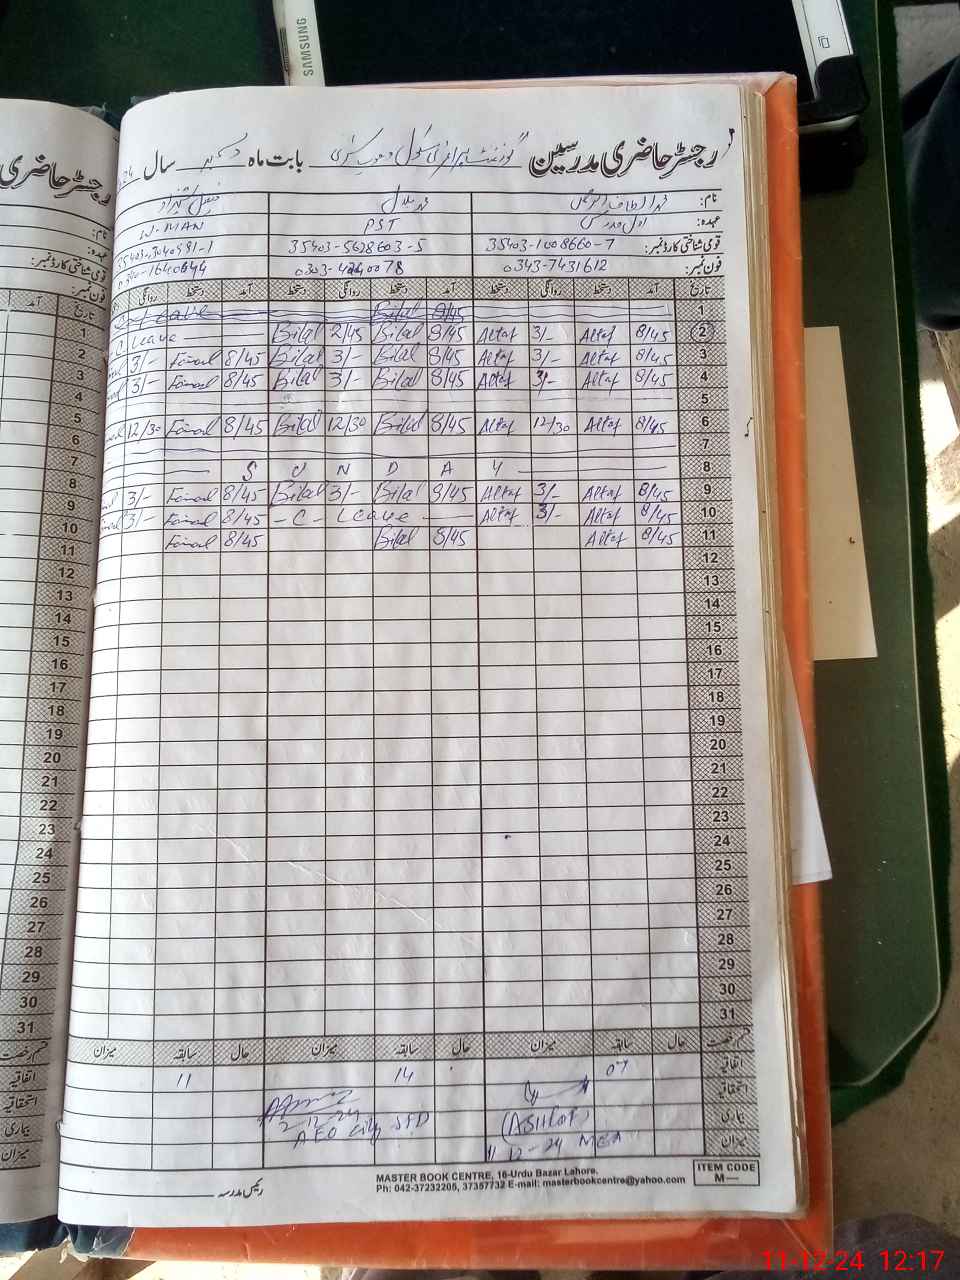 SAMSUNG
رجسٹر حاضری مدرسین گورنمنٹ پرائمری سکول بابت ماہ دسمبر سال
نام: محمد الطاف محمد بلال
عہدہ: PST W-MAN
قومی شناختی کارڈ نمبر: 35403-1008660-7 35403-5628603-5
فون نمبر: 0343-7431612
تاریخ آمد دستخط روانگی دستخط آمد دستخط روانگی دستخط آمد دستخط روانگی
1 8/45 Bilal
2 8/45 Altaf 3/- Altaf 8/45 Bilal 2/45 Bilal C Leave
3 8/45 Altaf 3/- Altaf 8/45 Bilal 3/- Bilal 8/45 Faisal 3/-
4 8/45 Altaf 3/- Altaf 8/45 Bilal 3/- Bilal 8/45 Faisal 3/-
5
6 8/45 Altaf 12/30 Altaf 8/45 Bilal 12/30 Bilal 8/45 Faisal 12/30
7
8 S U N D A Y
9 8/45 Altaf 3/- Altaf 8/45 Bilal 3/- Bilal 8/45 Faisal 3/-
10 8/45 Altaf 3/- Altaf - C - Leave 8/45 Faisal 3/-
11 8/45 Altaf 8/45 Bilal 8/45 Faisal
12
13
14
15
16
17
18
19
20
21
22
23
24
25
26
27
28
29
30
31
قسم رخصت حال سابقہ میزان حال سابقہ میزان حال سابقہ میزان
اتفاقیہ 07 14 11
استحقاقیہ
بیماری (ASHRAF) 2-12-24 AEO City
میزان 11-12-24 MEA
رئیس مدرسہ
MASTER BOOK CENTRE, 16-Urdu Bazar Lahore.
Ph: 042-37232205, 37357732 E-mail: masterbookcentre@yahoo.com
ITEM CODE
M—
رجسٹر حاضری
نام:
عہدہ:
قومی شناختی کارڈ نمبر:
فون نمبر:
تاریخ آمد
1
2
3
4
5
6
7
8
9
10
11
12
13
14
15
16
17
18
19
20
21
22
23
24
25
26
27
28
29
30
31
قسم رخصت
اتفاقیہ
استحقاقیہ
بیماری
میزان
11-12-24 12:17